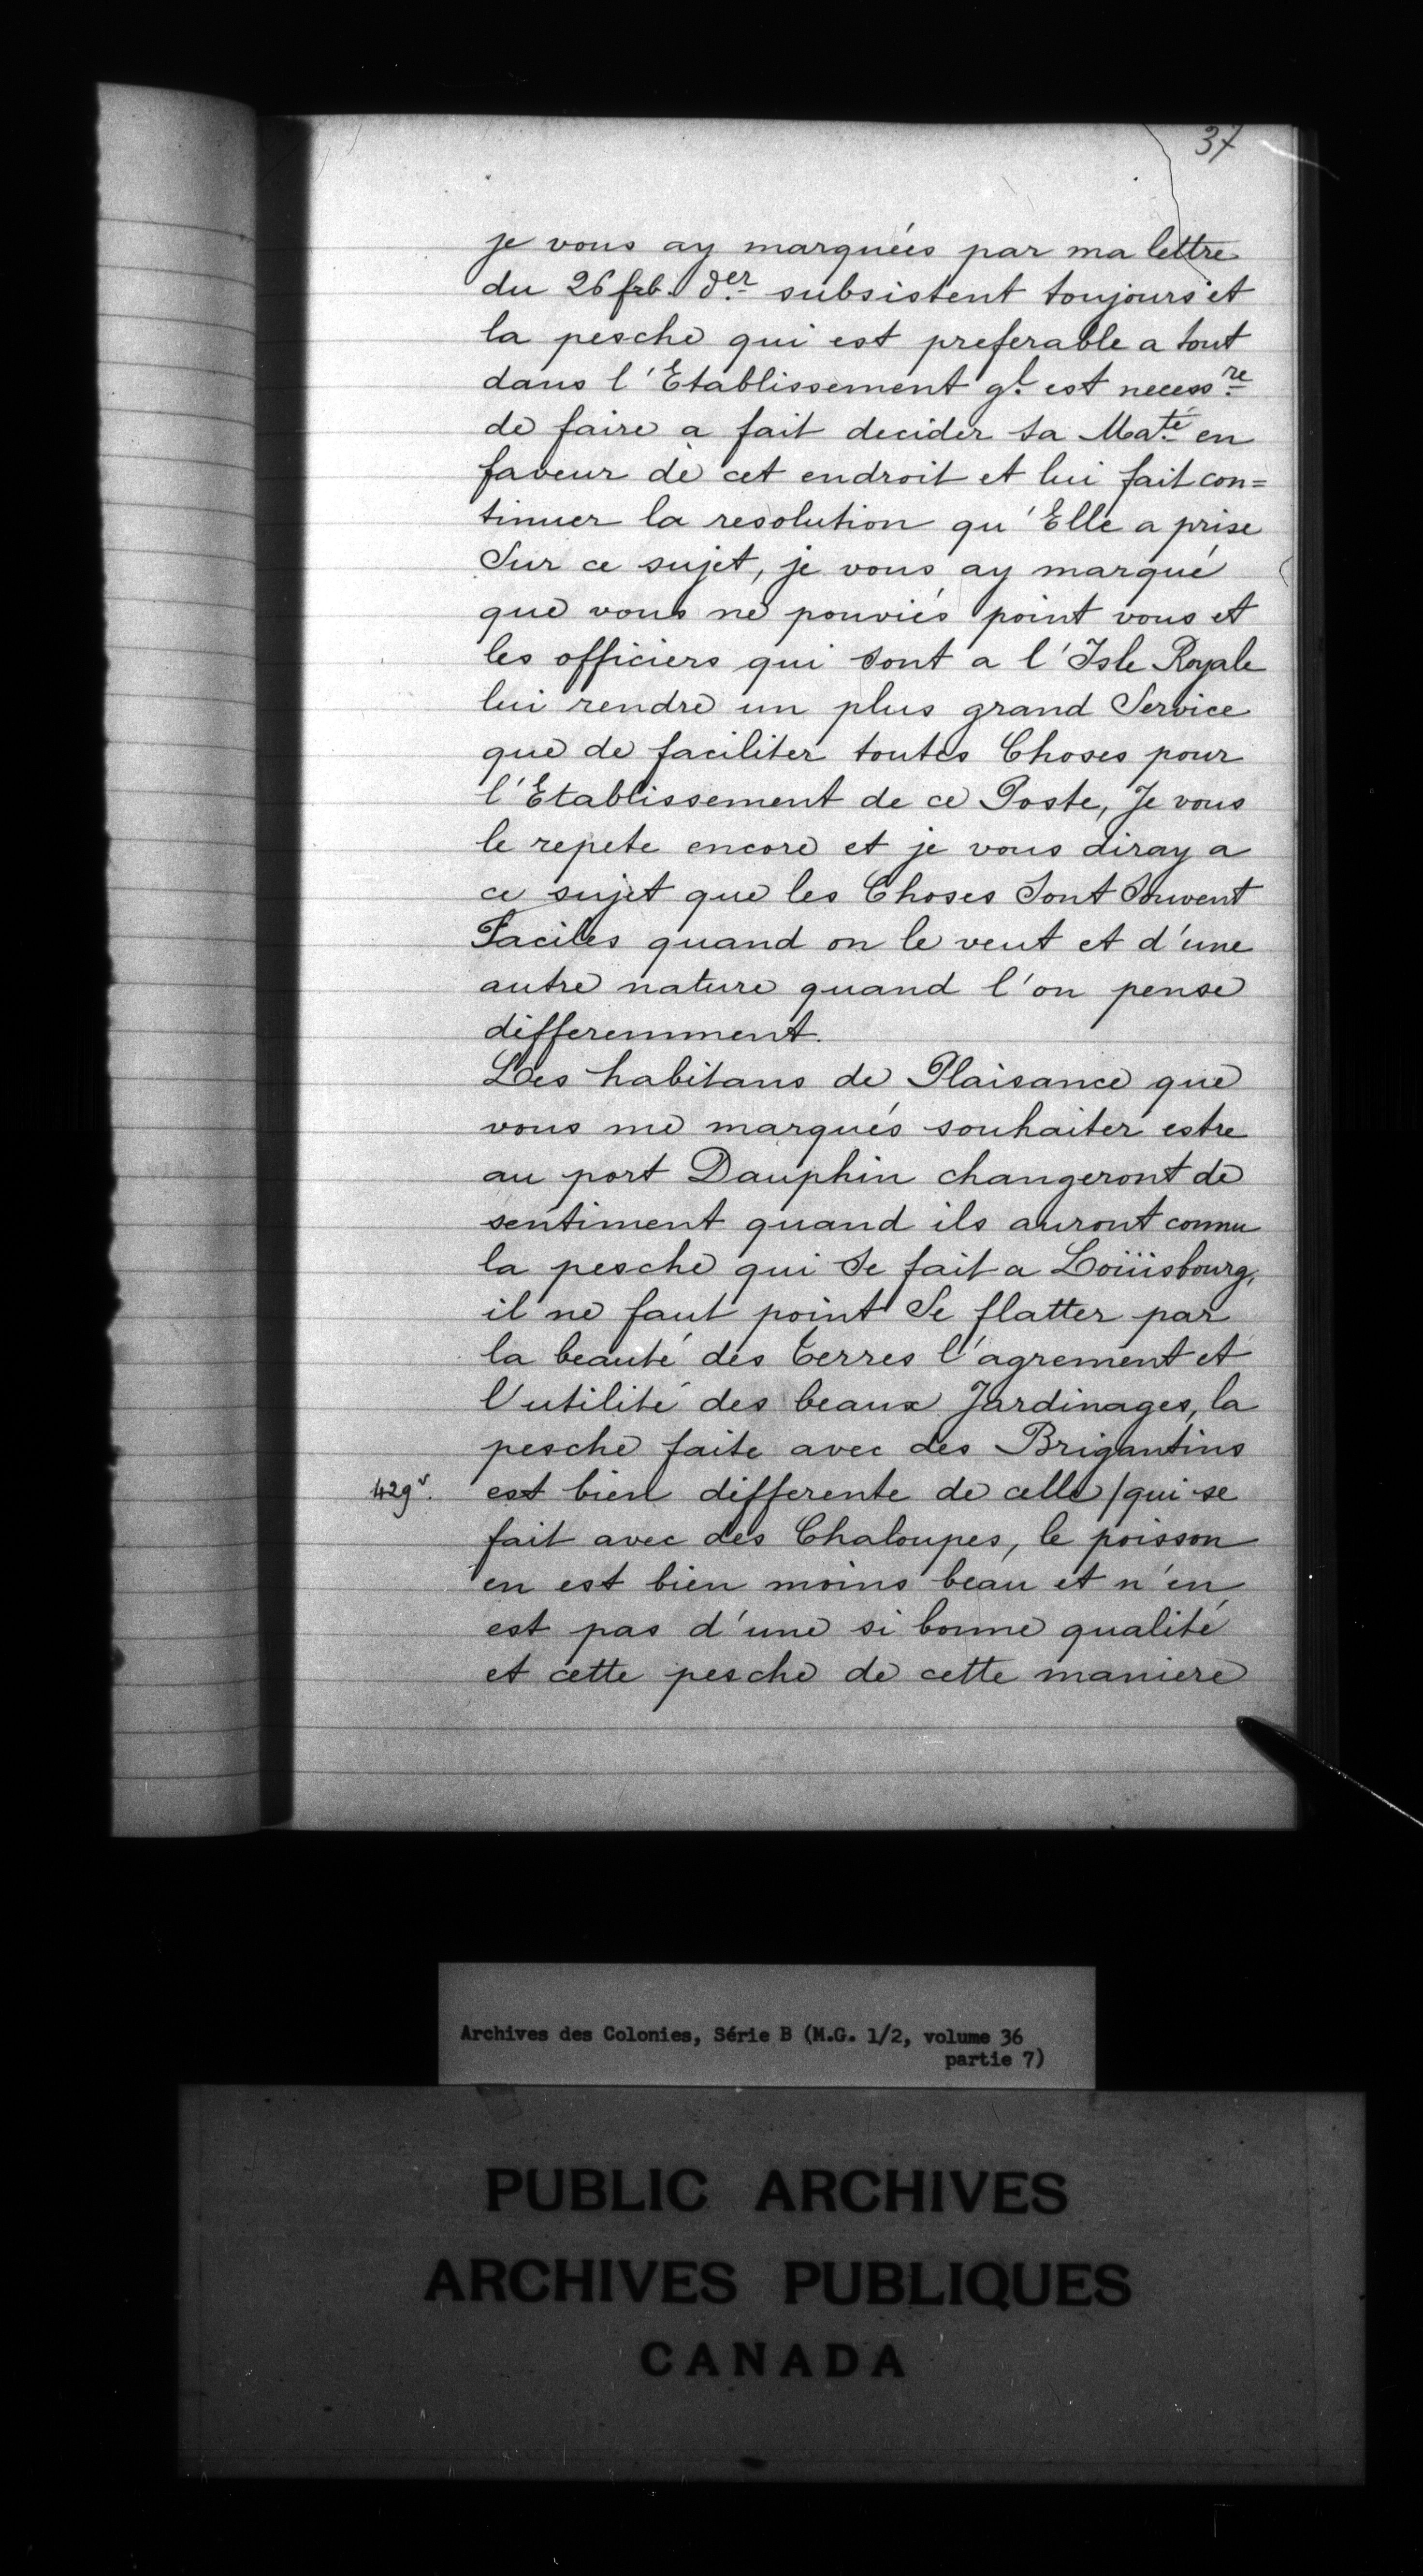 37
je vous ay marquées par ma lettre
du 26 feb. der subsistent toujours et
la pesche qui est preferable a tout
dans l'Etablissement gl. est necess.re
de faire a fait decider sa Ma.té en
faveur de cet endroit et lui fait con=
tinuer la resolution qu'Elle a prise
Sur ce sujet, je vous ay marqué
que vous ne pouviés point vous et
les officiers qui sont a l'Isle Royale
lui rendre un plus grand Service
que de faciliter toutes Choses pour
l'Etablissement de ce Poste, Je vous
le repete encore et je vous diray a
ce sujet que les Choses Sont Souvent
Faciles quand on le veut et d'une
autre nature quand l'on pense
differemment.
Les habitans de Plaisance que
vous me marqués souhaiter estre
au port Dauphin changeront de
sentiment quand ils auront connu
la pesche qui Se fait a Loüisbourg,
il ne faut point Se flatter par
la beauté des terres l'agrement et
l'utilité des beaux Jardinages, la
pesche faite avec des Brigantins
429v. est bien differente de celle / qui se
fait avec des Chaloupes, le poisson
en est bien moins beau et n'en
est pas d'une si bonne qualité
et cette pesche de cette maniere
Archives des Colonies, Série B (M.G. 1/2, volume 36
partie 7)
PUBLIC ARCHIVES
ARCHIVES PUBLIQUES
CANADA